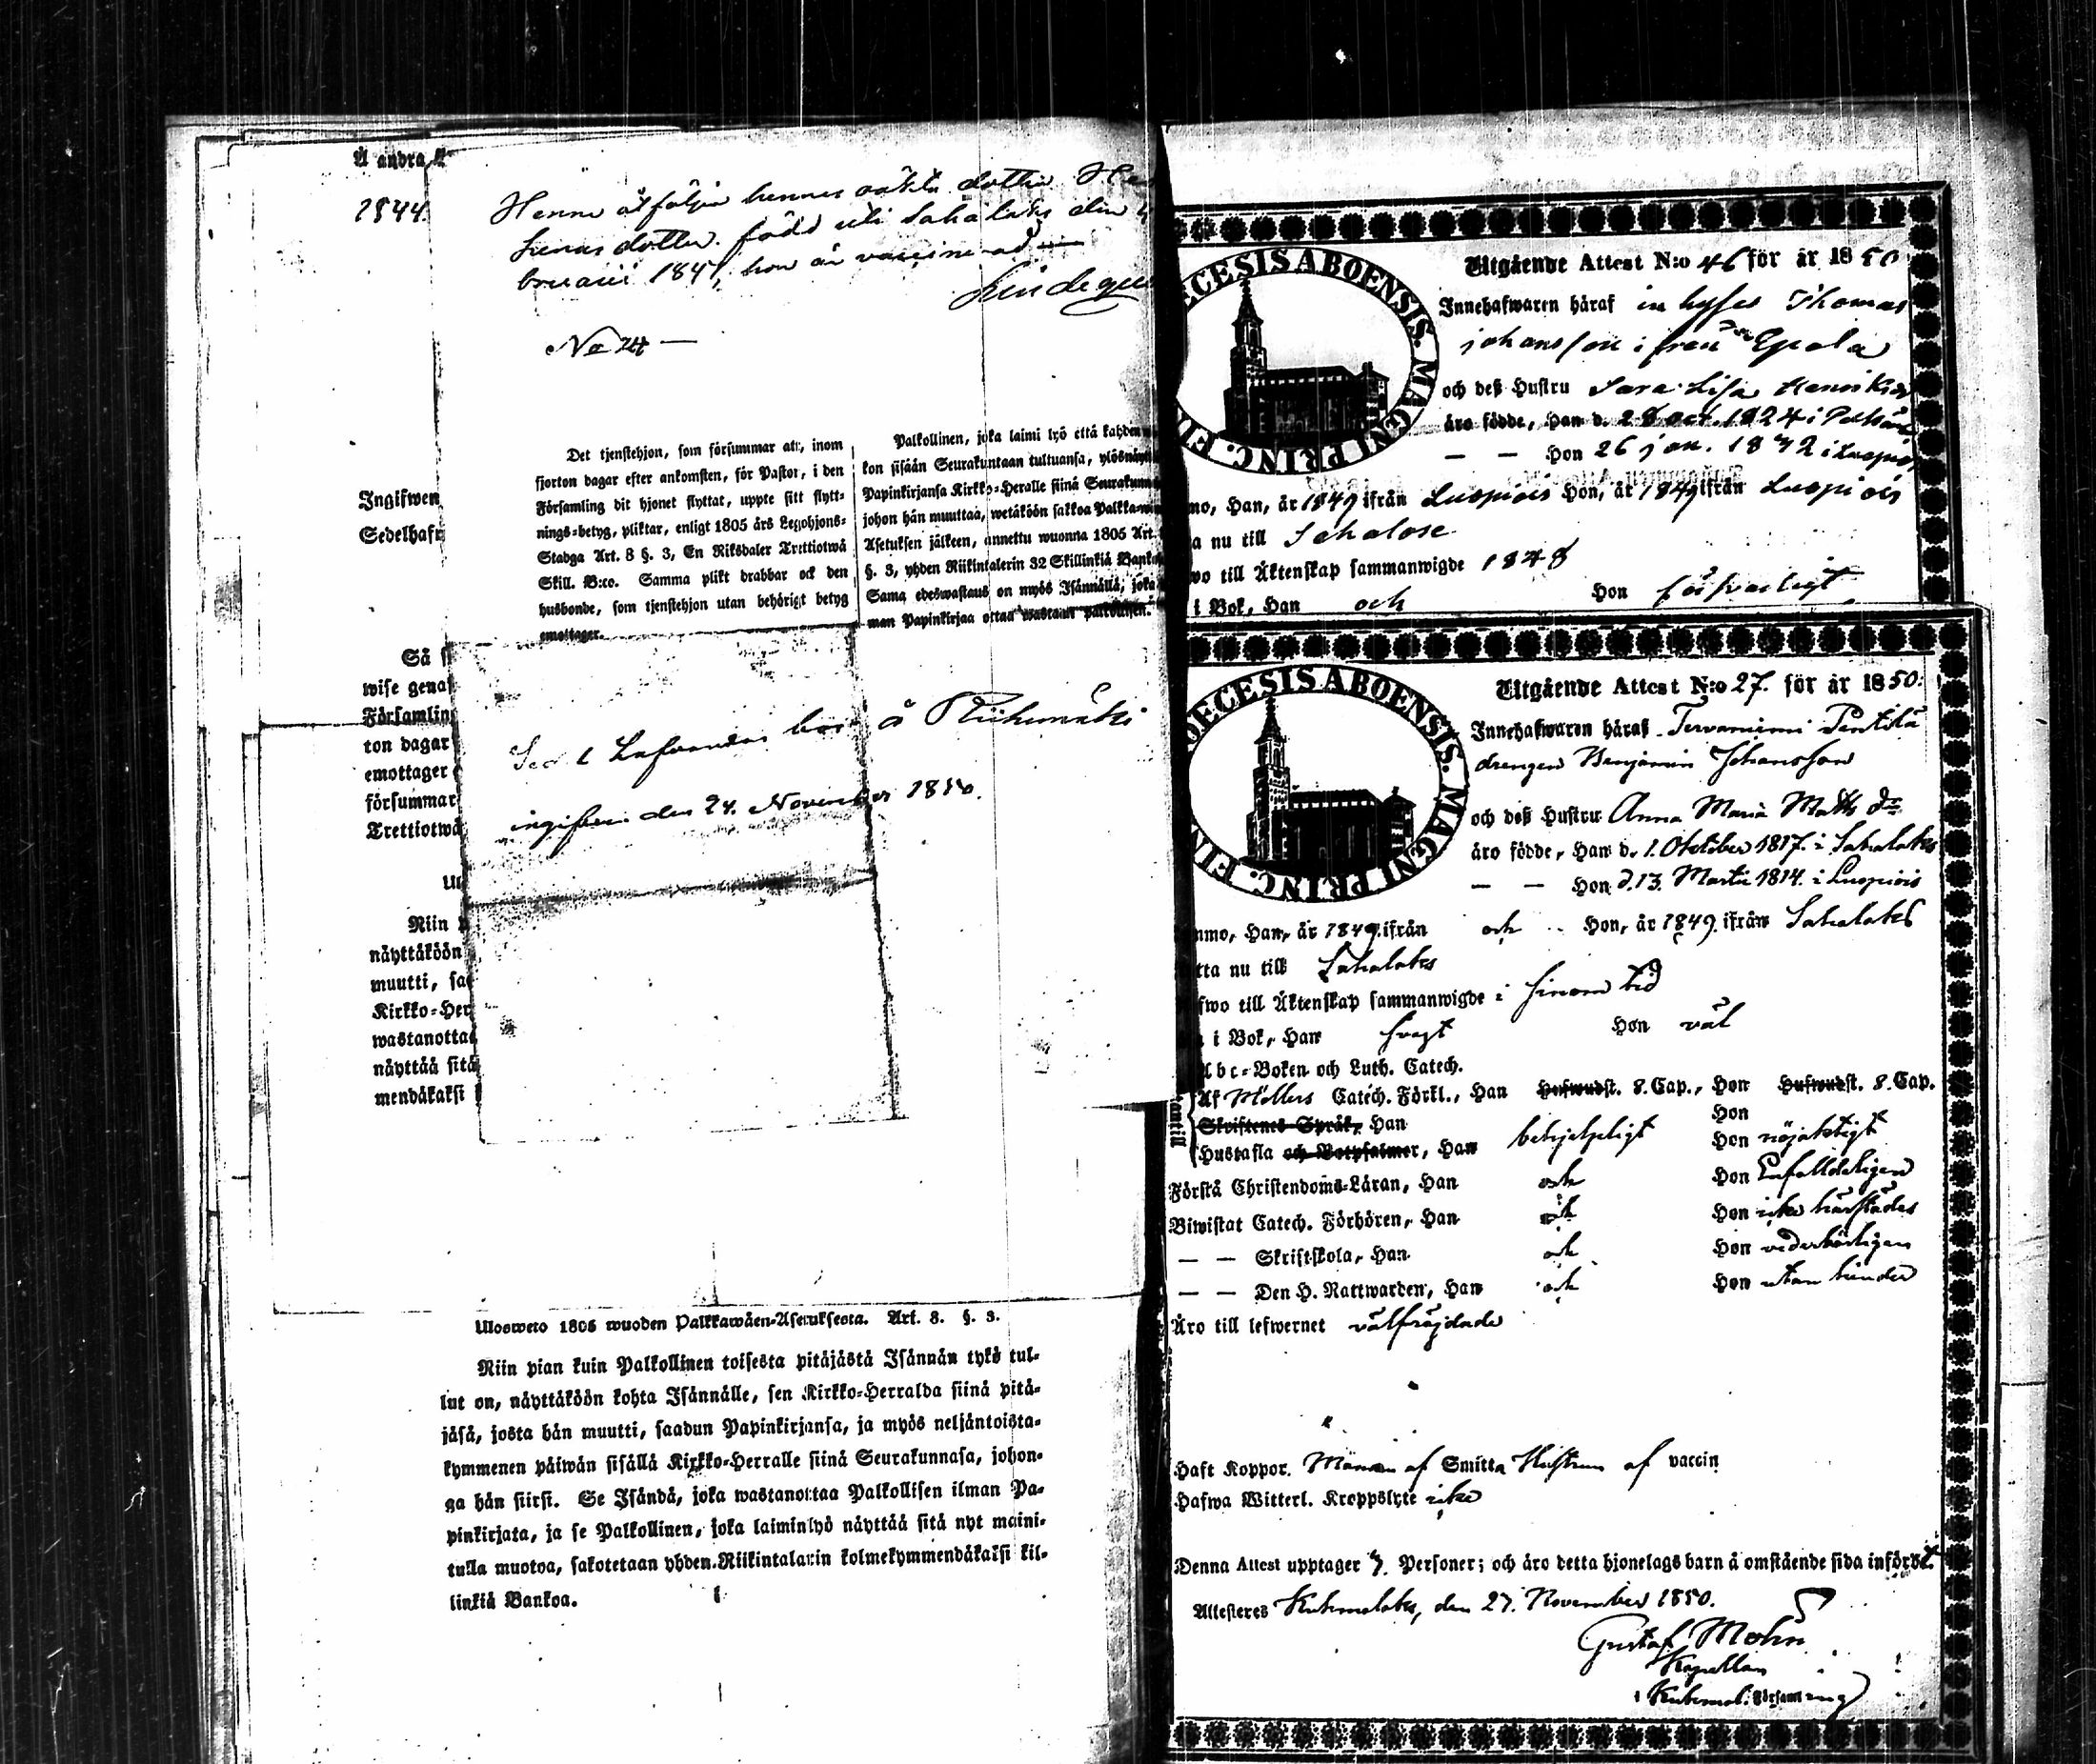 Å andra
1844.
Ingifwen
Sedelhafw
Så
wise genas
Församling
ton dagar
emottager
försummar
Trettiotwå
Niin
näyttäköön
muutti, saa
Kirkko-Her
wastanottaa
näyttää sitä
mendäkaksi
Henne åtföljer hennes oäkta dotter
dotter. född uti Sahalaks den
bruarii 1841, hon är vaccinerad
Lindeqvi
No 24
Det tjenstehjon, som försummar att, inom
fjorton dagar efter ankomsten, för Pastor, i den
Församling dit hjonet flyttat, uppte sitt flytt-
nings-betyg, pliktar, enligt 1805 års Legohjons-
Stadga Art. 8 §. 3, En Riksdaler Trettiotwå
Skill. B:co. Samma plikt drabbar ock den
husbonde, som tjenstehjon utan behörigt betyg
emottager.
Palkollinen, joka laimi lyö että kahden
kon sisään Seurakuntaan tultuansa, ylösnäyt
Papinkirjansa Kirkko-Herralle siinä Seurakunn
johon hän muuttaa, wetäköön sakkoa Palkka-
Asetuksen jälkeen, annettu wuonna 1805 Art.
§. 3, yhden Riikintalerin 32 Skillinkiä Banko
Sama edeswastaus on myös Isännällä, joka
man Papinkirjaa ottaa wastaan palkollisen.
å Riihimäki
ingifven den 24. November 1850.
Ulosweto 1805 wuoden Palkkawäen-Asetuksesta. Art. 8. §. 3.
Niin pian kuin Palkollinen toisesta pitäjästä Isännän tykö tul-
lut on, näyttäköön kohta Isännälle, sen Kirkko-Herralda siinä pitä-
jäsä, josta hän muutti, saadun Papinkirjansa, ja myös neljäntoista-
kymmenen päiwän sisällä Kirkko-Herralle siinä Seurakunnasa, johon-
ga hän siirsi. Se Isändä, joka wastanottaa Palkollisen ilman Pa-
pinkirjata, ja se Palkollinen, joka laiminlyö näyttää sitä nyt maini-
tulla muotoa, sakotetaan yhden Riikintalarin kolmekymmendäkaksi kil-
linkiä Bankoa.
ECESIS ABOENSIS. MAGNI PRINC. FIN
Utgående Attest N:o 46 för år 1850
Innehafwaren häraf inhyses Thomas
Johansson ifrån Epola
och deß Hustru Sara Lisa Henriksd
äro födde, Han d. 28 oct. 1824 i Pelkäne
— — Hon 26 jan. 1842 i Luopiois
mo, Han, år 1849 ifrån Luopiois Hon, år 1849 ifrån Luopiois
a nu till Sahalax
wo till Äktenskap sammanwigde 1848
i Bok, Han och Hon försvarligt
OECESIS ABOENSIS. MAGNI PRINC. FIN
Utgående Attest N:o 27. för år 1850.
Innehafwaren häraf Tervaniemi Penttilä
drengen Benjamin Johansson
och deß Hustru Anna Maria Matts dr
äro födde, Han d. 1. Oktober 1817. i Sahalaks
— — Hon d. 13. Martii 1814. i Luopiois
mmo, Han, år 1849. ifrån och Hon, år 1849. ifrån Sahalaks
tta nu till Sahalaks
fwo till Äktenskap sammanwigde i sinom tid
i Bok, Han svagt Hon väl
Abc-Boken och Luth. Catech.
Af Möllers Catech. Förkl., Han Hufwudst. 8. Cap., Hon Hufwudst. 8. Cap.
Skriftenes Språk, Han Hon
Hustafla och Botpsalmer, Han behjelpeligt Hon nöjaktigt
Förstå Christendoms-Läran, Han och Hon Enfalldeligen
Biwistat Catech. Förhören, Han och Hon icke härstädes
— — Skriftskola, Han och Hon vederbörligen
— — Den H. Nattwarden, Han och Hon utan hinder
Äro till lefwernet välfräjdade
Haft Koppor. Mannen af Smitta Hustrun af vaccin
Hafwa Witterl. Kroppslyte icke
Denna Attest upptager 7. Personer; och äro detta hjonelags barn å omstående sida införde.
Attesteres Kuhmalaks, den 27. November 1850.
Gustaf Molin
Kapellan
i Kuhmal. Församling